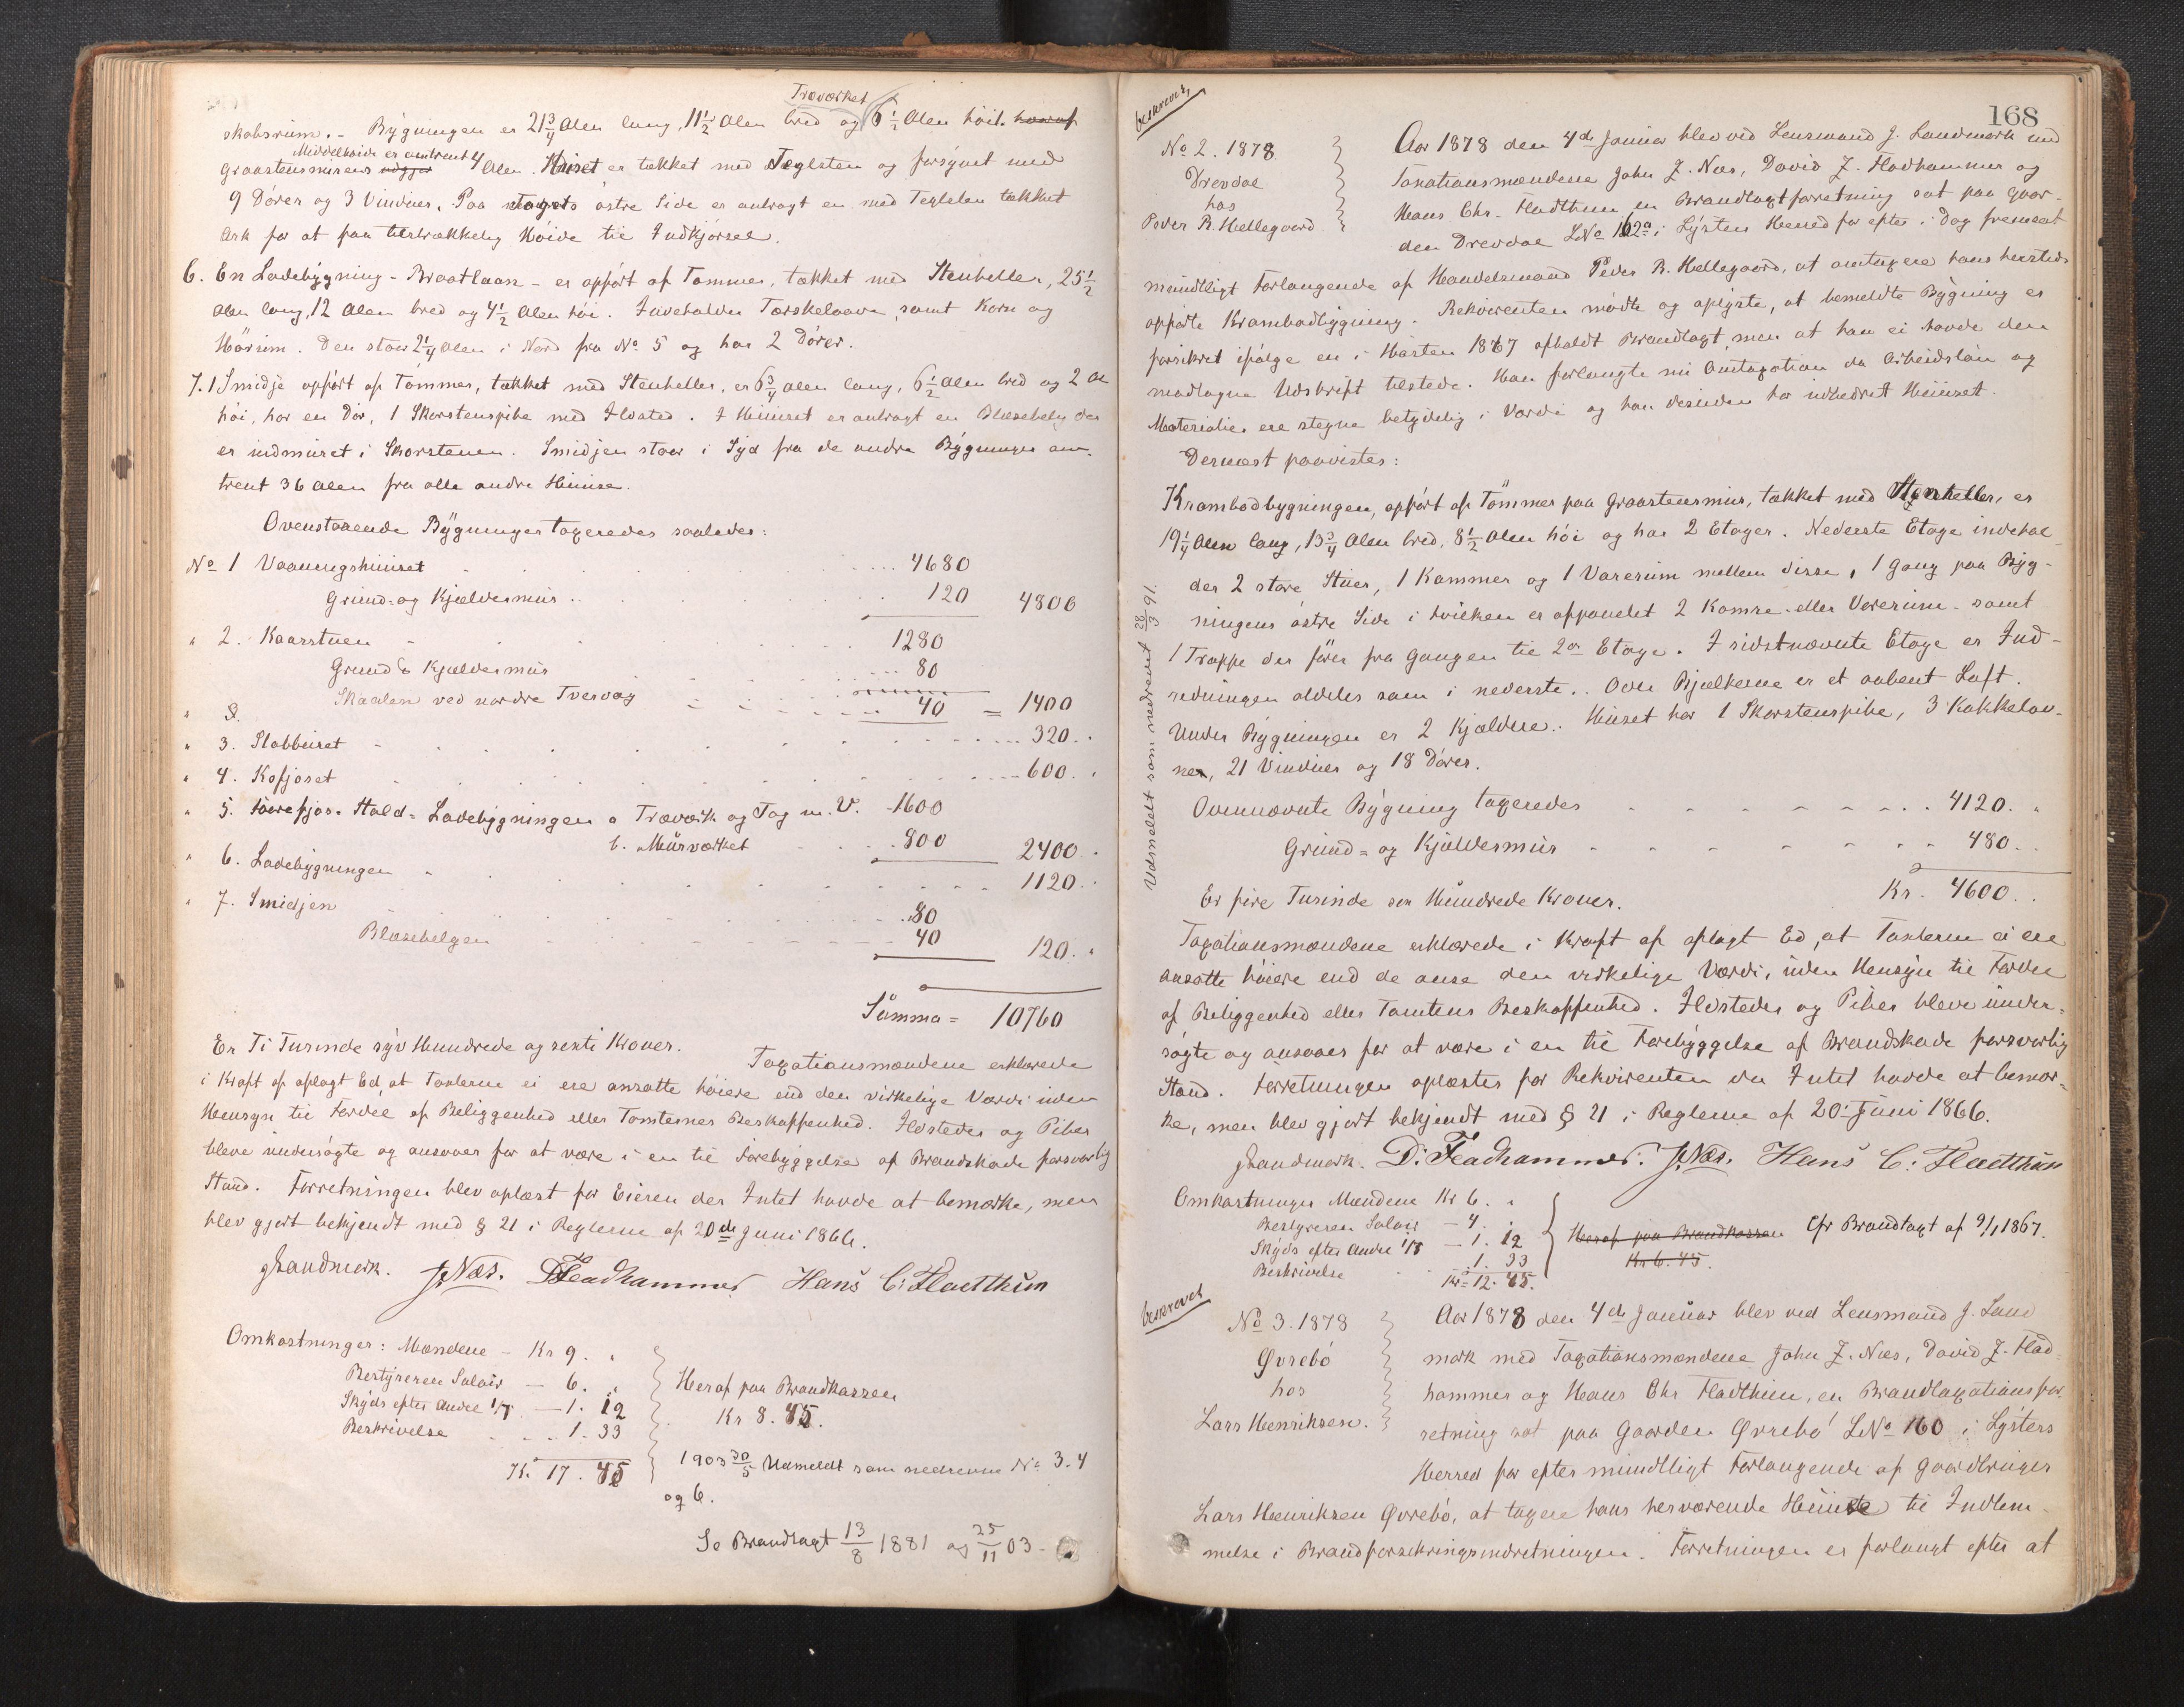 Træværket
skabsrum. - Bygningen er 21 3/4 Alen lang, 11 1/2 Alen bred og 6 1/2 Alen höit. hvoraf
Middelhöide er omtrent
Graastensmurens udgjør 4 Alen. Huset er tækket med Teglsten og forsynet med
9 Dörer og 3 Vinduer. Paa Tagets östre Side er anbragt en med Teglsten tækket
Ark for at faa tilstrækkelig Höide til Indkjörsel.
6. En Ladebygning - Braatlaan - er opfört af Tömmer, tækket med Stenheller, 25 1/2
Alen lang, 12 Alen bred og 4 1/2 Alen höi. Indeholder Tærskelaave, samt Korn og
Hörum. Den staar 2 1/4 Alen i Nord fra No 5 og har 2 Dörer.
7. 1 Smidje opfört af Tömmer, tækket med Stenheller, er 6 3/4 Alen lang, 6 1/2 Alen bred og 2 Al
höi, har en Dör, 1 Skorstenspibe med Ildsted. I Huset er anbragt en Blæsebelg der
er indmuret i Skorstenen. Smidjen staar i Syd fra de andre Bygninger om-
trent 36 Alen fra alle andre Huuse.
Ovenstaaende Bygninger taxeredes saaledes:
No 1 Vaaningshuuset 4680
Grund- og Kjældermuur 120 4800
" 2. Kaarstuen 1280
Grund & Kjældermuur 80
Skaalen ved nordre Tvervæg 40 = 1400
" 3. Stabburet 320.
" 4. Kofjøset 600.
" 5. Faarefjøs- Stald- Ladebygningen a Træværk og Tag m. V. 1600
b. Muurværket 800 2400.
" 6. Ladebygningen 1120.
" 7. Smidjen 80
Blæsebelgen 40 120.
Summa = 10760
Er Ti Tusinde syv Hundrede og sexti Kroner. Taxationsmændene erklærede
i Kraft af aflagt Ed at Taxterne ei ere ansatte höiere end den virkelige Værdi uden
Hensyn til Fordele af Beliggenhed eller Tomternes Beskaffenhed. Ildsteder og Piber
bleve undersögte og ansaaes for at være i en til Forebyggelse af Brandskade forsvarlig
Stand. Forretningen blev oplæst for Eieren der Intet havde at bemærke, men
blev gjort bekjendt med § 21 i Reglerne af 20de Juni 1866.
JLandmark. JNæs. DFladhammer Hans C: Fladthun
Omkostninger: Mændene - Kr 9. "
Bestyreren Salair — 6. "
Skyds efter Andre — 1. 12
Beskrivelse 1. 33
Kr. 17. 45
Heraf paa Brandkassen
Kr 8. 45.
1903 30/5 Udmeldt som nedrevne No 3. 4
og 6.
Se Brandtaxt 13/8 1881 og 25/11 03 -
168
beskrevet,
No 2. 1878.
Drevdal
hos
Peder R. Hellegaard.
Aar 1878 den 4de Januar blev ved Lensmand J. Landmark med
Taxationsmændene John J. Næs, David J. Fladhammer og
Hans Chr. Fladthun en Brandtaxtforretning sat paa Gaar-
den Drevdal LNo 162a i Lysten Herred for efter i Dag fremsat
mundtligt Forlangende af Handelsmand Peder R. Hellegaard, at omtaxere hans hersteds
opførte Krambodbygning. Rekvirenten mödte og oplyste, at bemeldte Bygning er
forsikret ifölge en i Hösten 1867 afholdt Brandtaxt, men at han ei havde den
modtagne Udskrift tilstede. Han forlangte nu Omtaxation da Arbeidslön og
Materialier ere stegne betydelig i Værdi og han desuden har udbedret Huuset.
Dernæst paavistes:
Krambodbygningen, opfört af Tömmer paa Graastensmuur, tækket med Stenheller, er
19 1/4 Alen lang, 13 3/4 Alen bred, 8 1/2 Alen höi og har 2 Etager. Nederste Etage indehol-
der 2 store Stuer, 1 Kammer og 1 Varerum mellem disse, 1 Gang paa Byg-
ningens östre Side i hvilken er afpanelet 2 Kamre eller Varerum - samt
1 Trappe der förer fra Gangen til 2den Etage. I sidstnævnte Etage er Ind-
redningen aldeles som i nederste. Over Bjælkerne er et aabent Loft.
Under Bygningen er 2 Kjældere. Huset har 1 Skorstenspibe, 3 Kakkelov-
ne, 21 Vinduer og 18 Dörer.
Udmeldt som nedrevet 28/3 91.
Ovennævnte Bygning taxeredes 4120. "
Grund- og Kjældermuur 480. "
Er fire Tusinde sex Hundrede Kroner. Kr. 4600.
Taxationsmændene erklærede i Kraft af aflagt Ed, at Taxterne ei ere
ansatte höiere end de anse den virkelige Værdi, uden Hensyn til Fordele
af Beliggenhed eller Tomtens Beskaffenhed. Ildsteder og Piber bleve under-
sögte og ansaaes for at være i en til Forebyggelse af Brandskade forsvarlig
Stand. Forretningen oplæstes for Rekvirenten der Intet havde at bemær-
ke, men blev gjort bekjendt med § 21 i Reglerne af 20. Juni 1866.
JLandmark. D: Fladhammer. JNæs. Hans C: Fladthun
Omkostninger Mændene Kr 6. "
Bestyreren Salair — 4. "
Skyds efter Andre — 1. 12
Beskrivelse 1. 33
Kr. 12. 45.
Heraf paa Brandkassen Cfr Brandtaxt af 9/1 1867.
Kr 6. 45.
beskrevet
No 3. 1878
Øvrebö
hos
Lars Henriksen.
Aar 1878 den 4de Januar blev ved Lensmand J. Land
mark med Taxationsmændene John J. Næs, David J. Flad
hammer og Hans Chr Fladthun, en Brandtaxationsfor
retning sat paa Gaarden Øvrebö LNo 160 i Lysters
Herred for efter mundtligt Forlangende af Gaardbruger
Lars Henriksen Øvrebö, at taxere hans herværende Huuse til Indlem-
melse i Brandforsikringsindretningen. Forretningen er forlangt efter at